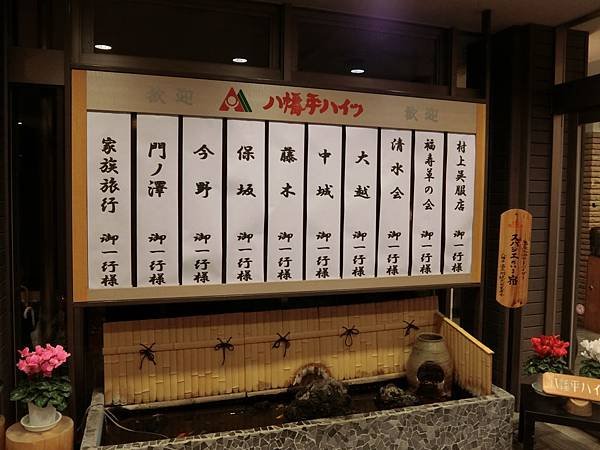 歓迎
八幡平ハイツ
歓迎
村上呉服店 御一行様
福寿草の会 御一行様
清水会 御一行様
大越 御一行様
中城 御一行様
藤木 御一行様
保坂 御一行様
今野 御一行様
門ノ澤 御一行様
家族旅行 御一行様
八幡平ハイ